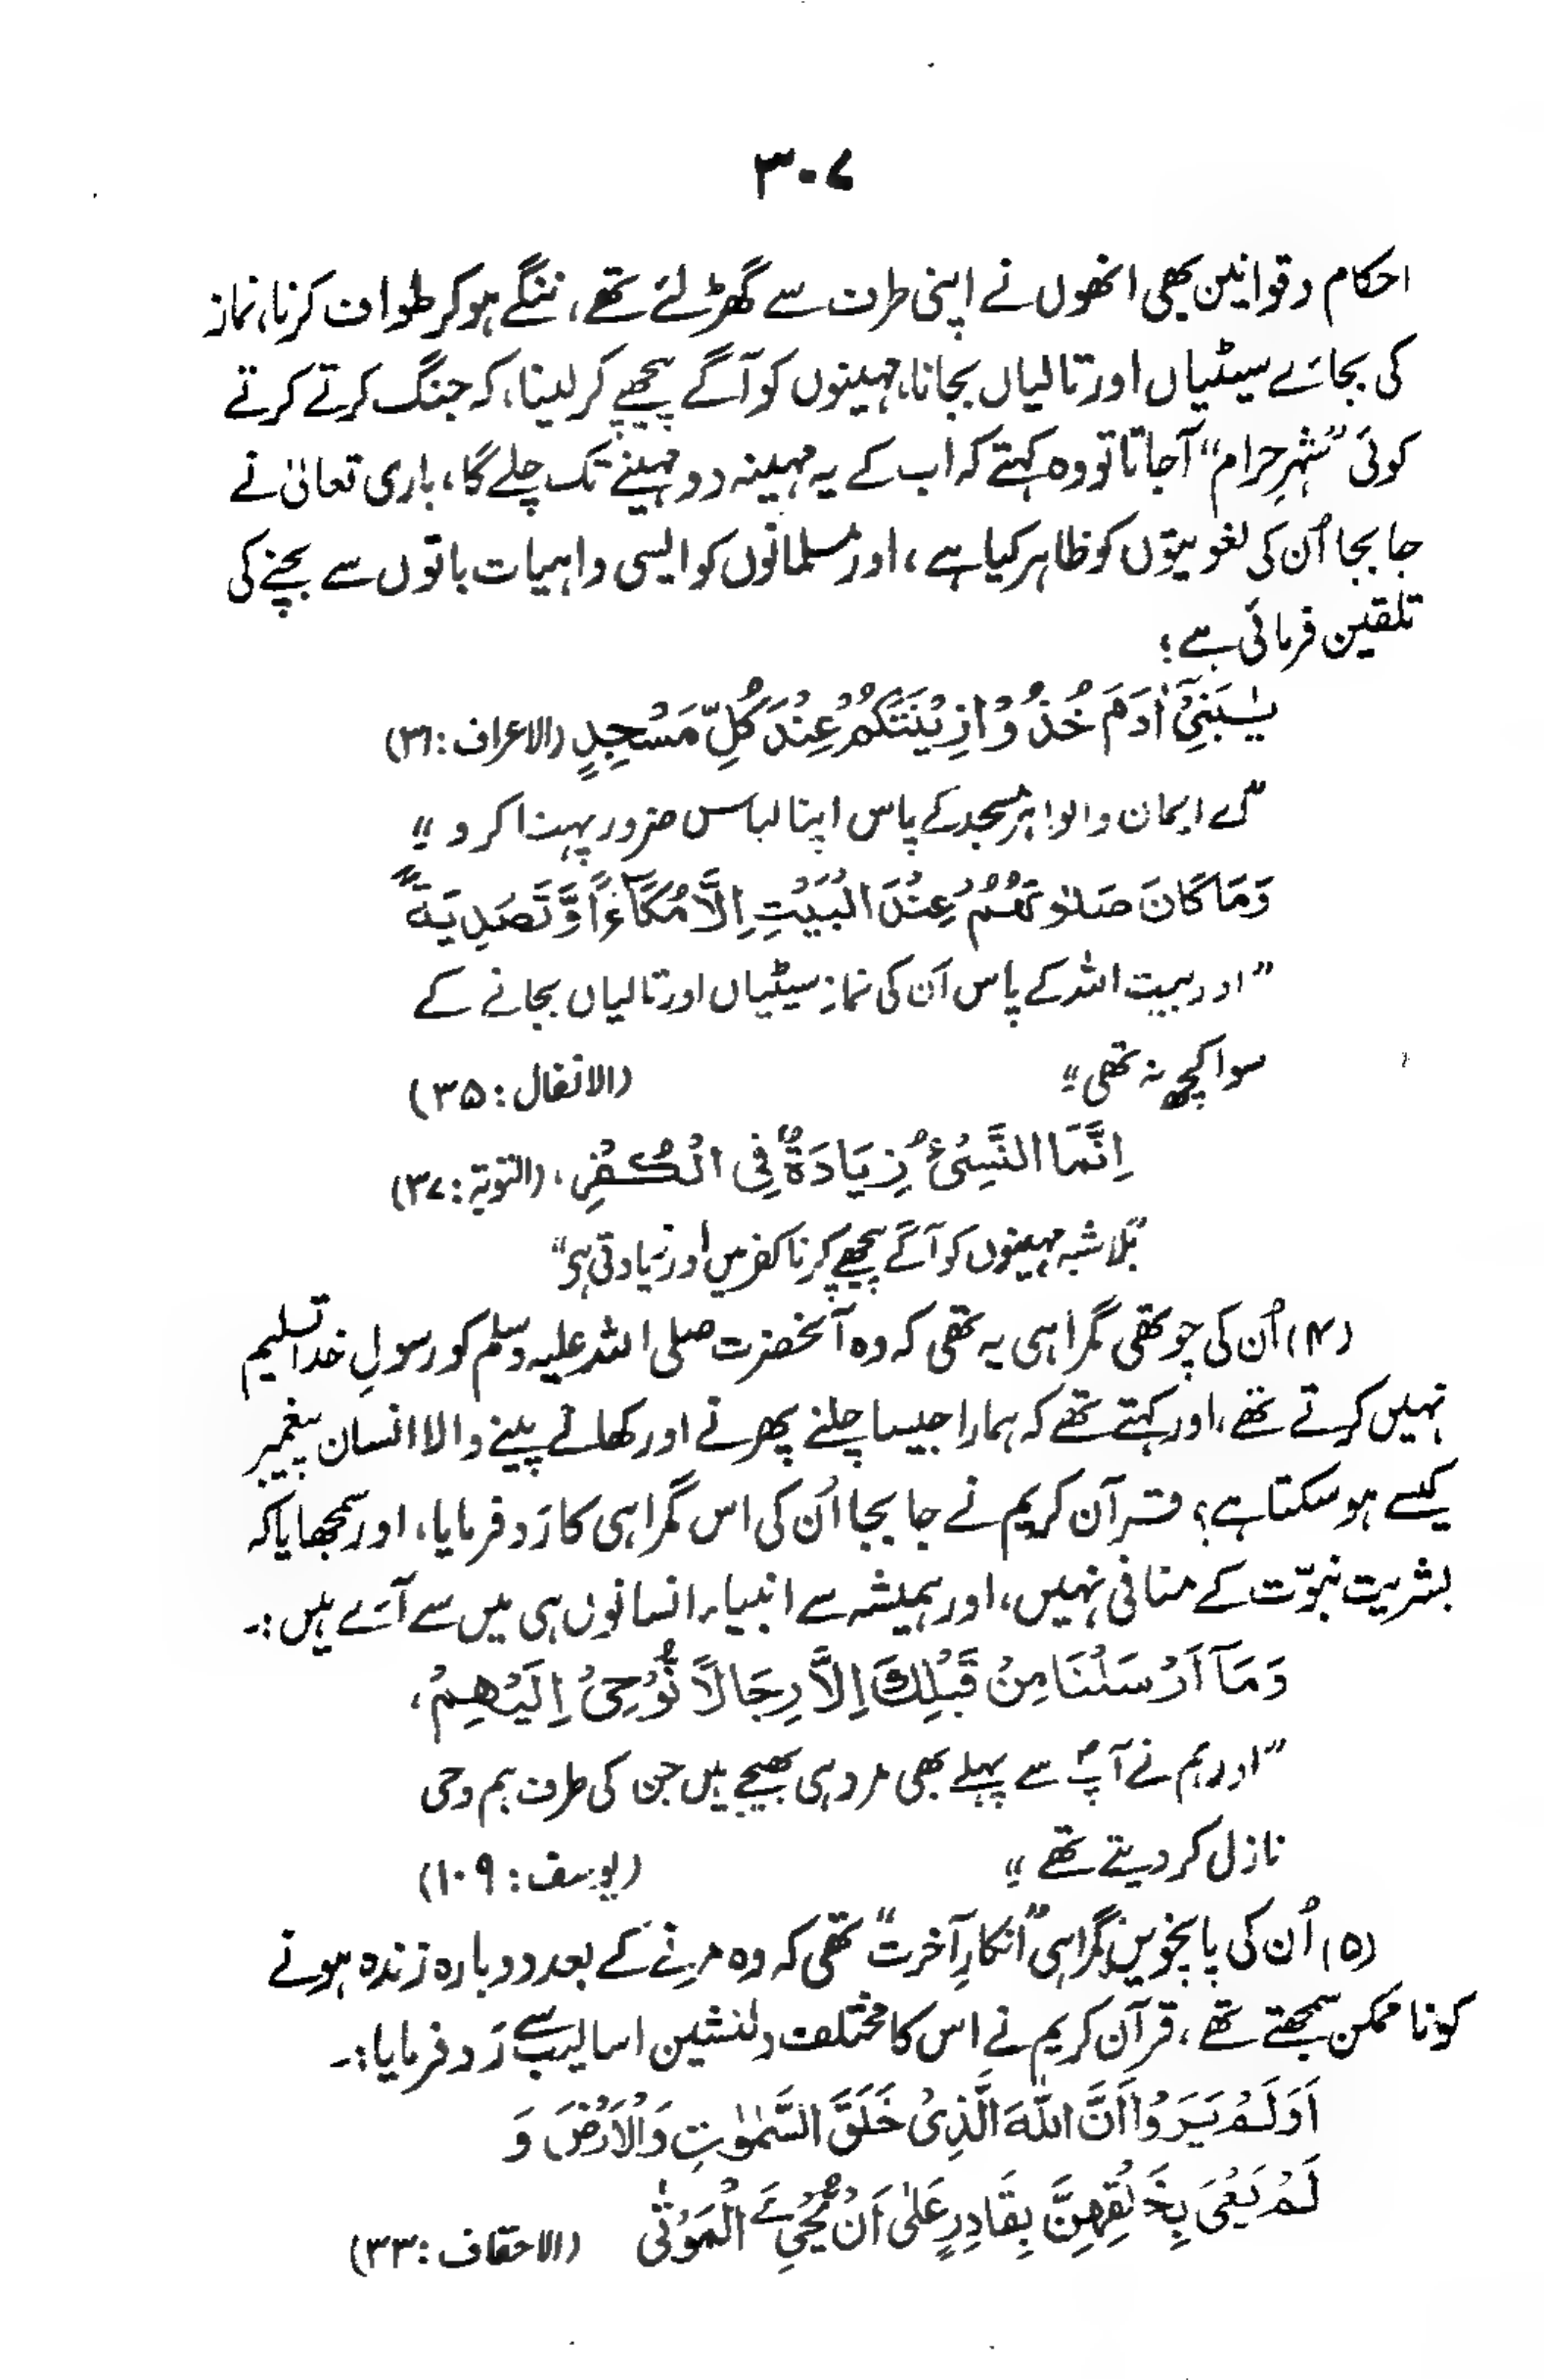 ۳۰۷
احکام و قوانین بھی انھوں نے اپنی طرف سے گھڑ لئے تھے، ننگے ہو کر طواف کرنا، نماز
کی بجائے سیٹیاں اور تالیاں بجانا، مہینوں کو آگے پیچھے کر لینا، کہ جنگ کرتے کرتے
کوئی "شہرِ حرام" آجاتا تو وہ کہتے کہ اب کے یہ مہینہ دو مہینے تک چلے گا، باری تعالیٰ نے
جا بجا اُن کی لغویتوں کو ظاہر کیا ہے، اور مسلمانوں کو ایسی واہیات باتوں سے بچنے کی
تلقین فرمائی ہے؛
يٰبَنِيْٓ اٰدَمَ خُذُوْا زِيْنَتَكُمْ عِنْدَ كُلِّ مَسْجِدٍ (الاعراف: ۳۱)
"اے ایمان والو! ہر مسجد کے پاس اپنا لباس ضرور پہنا کرو"
وَمَا كَانَ صَلَاتُهُمْ عِنْدَ الْبَيْتِ اِلَّا مُكَآءً وَّتَصْدِيَةً
"اور بیت اللہ کے پاس اُن کی نماز سیٹیاں اور تالیاں بجانے کے
سوا کچھ نہ تھی" (الانفال: ۳۵)
اِنَّمَا النَّسِيْٓءُ زِيَادَةٌ فِي الْكُفْرِ، (التوبۃ: ۳۷)
"بلا شبہ مہینوں کو آگے پیچھے کرنا کفر میں اور زیادتی ہی"
(۴) اُن کی چوتھی گمراہی یہ تھی کہ وہ آنخضرت صلی اللہ علیہ وسلم کو رسولِ خدا تسلیم
نہیں کرتے تھے، اور کہتے تھے کہ ہمارا جیسا چلنے پھرنے اور کھانے پینے والا انسان پیغمبر
کیسے ہو سکتا ہے؟ قرآن کریم نے جا بجا اُن کی اس گمراہی کا رَد فرمایا، اور سمجھایا کہ
بشریت نبوّت کے منافی نہیں، اور ہمیشہ سے انبیاء انسانوں ہی میں سے آئے ہیں:۔
وَمَآ اَرْسَلْنَا مِنْ قَبْلِكَ اِلَّا رِجَالًا نُّوْحِيْ اِلَيْهِمْ،
"اور ہم نے آپؐ سے پہلے بھی مرد ہی بھیجے ہیں جن کی طرف ہم وحی
نازل کر دیتے تھے" (یوسف: ۱۰۹)
(۵) اُن کی پانچویں گمراہی "انکارِ آخرت" تھی کہ وہ مرنے کے بعد دوبارہ زندہ ہونے
کو ناممکن سمجھتے تھے، قرآن کریم نے اس کا مختلف دلنشین اسالیب سے رَد فرمایا:۔
اَوَلَمْ يَرَوْا اَنَّ اللّٰهَ الَّذِيْ خَلَقَ السَّمٰوٰتِ وَالْاَرْضَ وَ
لَمْ يَعْيَ بِخَلْقِهِنَّ بِقَادِرٍ عَلٰى اَنْ يُّحْيِيَ الْمَوْتٰى (الاحقاف: ۳۳)